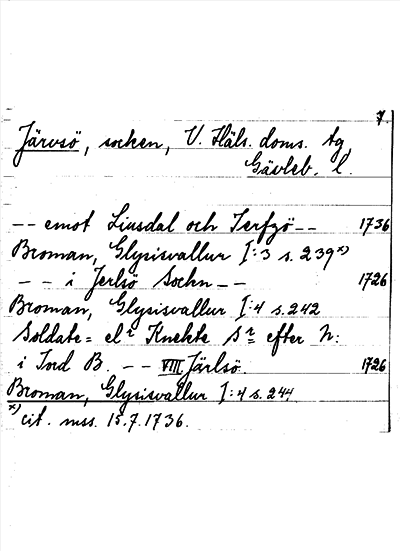 7.
Järvsö, socken, V. Häls. doms. tg,
Gävleb. l.
-- emot Liusdal och Jerfzö -- 1736
Broman, Glysisvallur I:3 s. 239 x)
-- i Jerlsö Sochn -- 1726
Broman, Glysisvallur I:4 s. 242
Soldate= el^r Knekte S^r efter N:
i Jord B. -- VIII Järlsö. 1726
Broman, Glysisvallur I:4 s. 244
x) cit. mss. 15.7.1736.